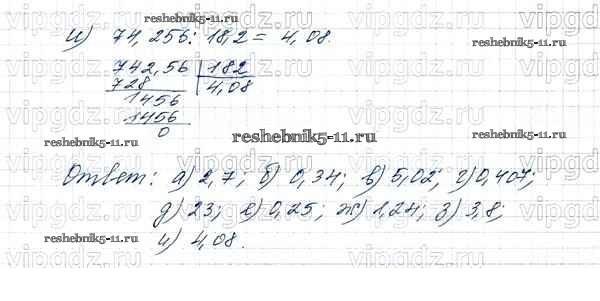 и) 74,256 : 18,2 = 4,08.
742,56 | 182
728 | 4,08
1456
1456
0
Ответ: а) 2,7; б) 0,34; в) 5,02; г) 0,407;
д) 23; е) 0,25; ж) 1,24; з) 3,8;
и) 4,08.
reshebnik5-11.ru
reshebnik5-11.ru
reshebnik5-11.ru
reshebnik5-11.ru
vipgdz.ru